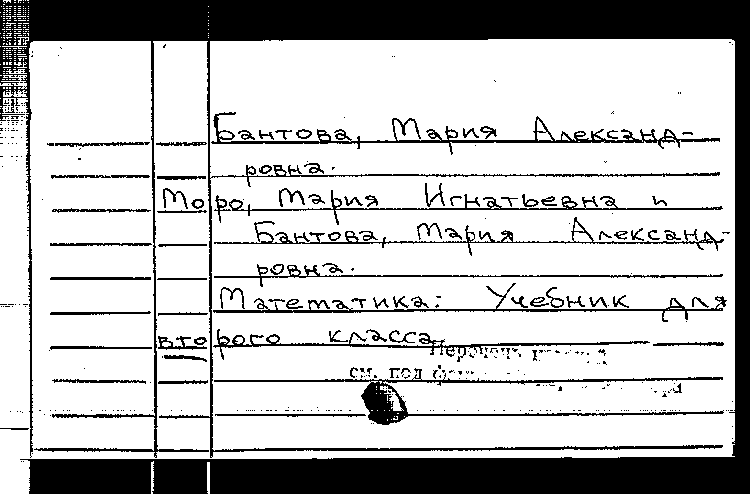 Бантова, Мария Александ-
ровна.
Моро, Мария Игнатьевна и
Бантова, Мария Александ-
ровна.
Математика: Учебник для
второго класса
см. под